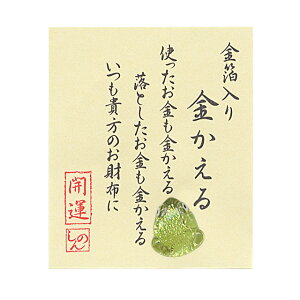 金箔入り
金かえる
使ったお金も金かえる
落としたお金も金かえる
いつも貴方のお財布に
開運
のん